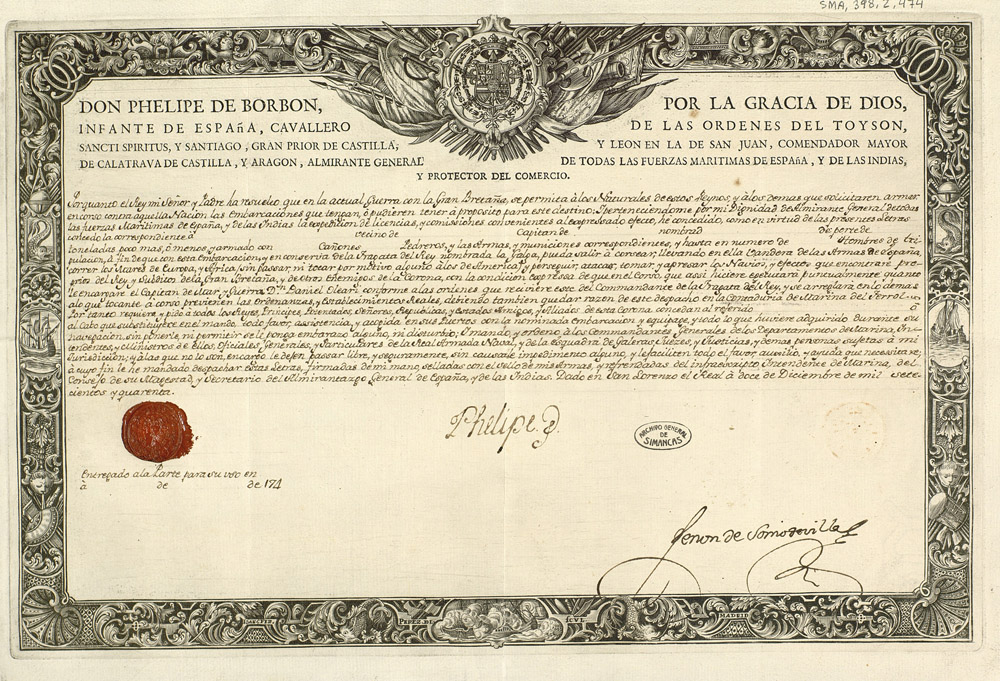 SMA, 398, 2, 474
DON PHELIPE DE BORBON, POR LA GRACIA DE DIOS,
INFANTE DE ESPAñA, CAVALLERO DE LAS ORDENES DEL TOYSON,
SANCTI SPIRITUS, Y SANTIAGO, GRAN PRIOR DE CASTILLA, Y LEON EN LA DE SAN JUAN, COMENDADOR MAYOR
DE CALATRAVA DE CASTILLA, Y ARAGON, ALMIRANTE GENERAL DE TODAS LAS FUERZAS MARITIMAS DE ESPAñA, Y DE LAS INDIAS,
Y PROTECTOR DEL COMERCIO.
Porquanto el Rey mi Señor y Padre ha resuelto que en la actual Guerra con la Gran Bretaña, se permita à los Naturales de estos Reynos y à los demas que solicitaren armar
en corso contra aquella Nacion las embarcaciones que tengan, ò pudieren tener à proposito para este destino: I perteneciendome por mi Dignidad de Almirante General de todas
las fuerzas Maritimas de España, y de las Indias la expedicion de licencias, y comissiones convenientes al expressado efecto, he concedido, como en virtud de las presentes Letras
concedo, la correspondiente à vecino de Capitan de nombrad de porte de
toneladas poco mas, ò menos, y armado con Cañones Pedreros, y las Armas, y municiones correspondientes, y hasta en numero de Hombres de tri-
pulacion, à fin de que con esta Embarcacion, y en conserva de la Fragata del Rey nombrada la Galga, pueda salir à corsear, llevando en ella Vandera de las Armas de España,
correr los Mares de Europa, y Africa, sin passar, ni tocar por motivo alguno à los de America; y perseguir, atacar, tomar, y apresar los Navios, y efectos que encontrare pro-
prios del Rey y Subditos de la Gran Bretaña, y de otros Enemigos de la Corona, con la condicion expressa de que en el Corso, que assi hiciere executarà puntualmente quanto
le encargare el Capitan de Mar, y Guerra Dn. Daniel Oleari conforme à las ordenes que recivierè este del Commandante de la Fragata del Rey, y se arreglarà en lo demas
à lo que tocante à corso previenen las Ordenanzas, y Establecimientos Reales, debiendo tambien quedar razon de este despacho en la Contaduria de Marina del Ferrol.
Por tanto requiero, y pido à todos los Reyes, Principes, Potentados, Señores, Republicas, y Estados Amigos, y Aliados de esta Corona, concedan al referido ò
al Cabo que substituyere en el mando todo favor, assistencia, y acogida en sus Puertos con la nominada Embarcacion, y equipage, y todo lo que huviere adquirido durante su
navegacion, sin ponerle, ni permitir se le ponga embarazo alguno, ni disgusto; I mando, y ordeno, à los Commandantes Generales de los Departamentos de Marina, In-
tendentes, y Ministros de ellos, Oficiales, Generales, y Particulares de la Real Armada Naval, y de la Esquadra de Galeras, Juezes, y Justicias, y demas personas sujetas à mi
Jurisdicion; y à las que no lo son, encargo le dejen passar libre, y seguramente, sin causarle impedimento alguno, y le faciliten todo el favor, auxilio, y ayuda que necessitare;
à cuyo fin le he mandado despachar estas Letras, firmadas de mi mano, selladas con el Sello de mis Armas, y refrendadas del infraescripto Intendente de Marina, del
Consejo de su Magestad, y Secretario del Almirantazgo General de España, y de las Indias. Dado en San Lorenzo el Real à doce de Diciembre de mil sete-
cientos y quarenta.
Phelipe.
ARCHIVO GENERAL
DE
SIMANCAS
Entregado à la Parte para su uso en
à de de 174
Zenon de Somodevilla